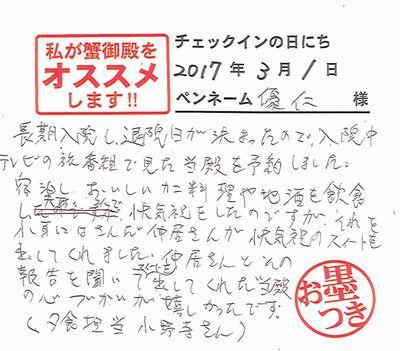 私が蟹御殿を
オススメ
します!!
チェックインの日にち
2017年3月1日
ペンネーム 優仁 様
長期入院し、退院日が決まったので、入院中
テレビの旅番組で見た当殿を予約しました。
宿泊し、おいしいカニ料理や地酒を飲食
し 快気祝をしたのですが、それを
小耳にはさんだ仲居さんが快気祝のスイートを
出してくれました。仲居さんとその
報告を聞いて 出してくれた当殿
の心づかいが嬉しかったです。
(夕食担当 小野寺さん)
お墨つき